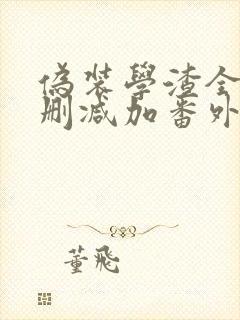 偽裝學渣全
刪減加番外
董飛